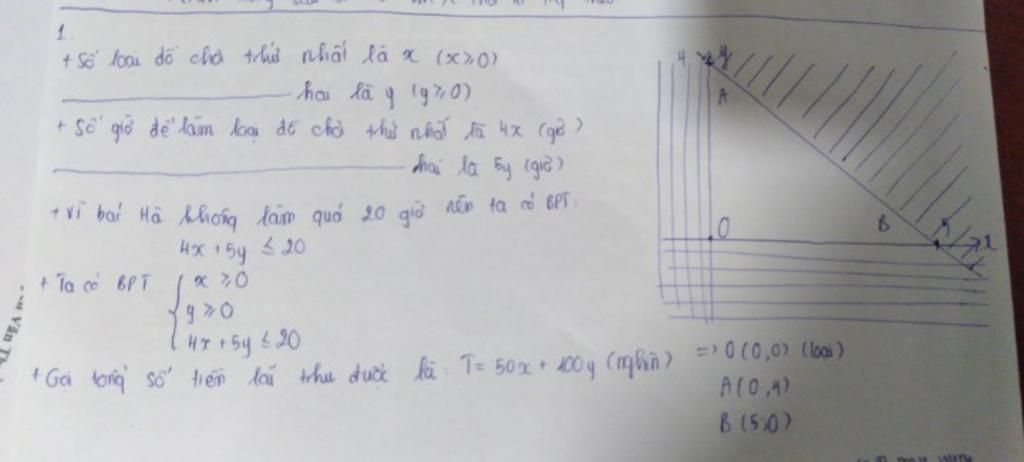 1.
+ Số loại đồ chơi thứ nhất là x (x ≥ 0)
hai là y (y ≥ 0)
+ Số giờ để làm loại đồ chơi thứ nhất là 4x (giờ)
hai là 5y (giờ)
+ Vì bác Hà không làm quá 20 giờ nên ta có BPT:
4x + 5y ≤ 20
+ Ta có BPT { x ≥ 0
y ≥ 0
4x + 5y ≤ 20
+ Gọi tổng số tiền lãi thu được là: T = 50x + 100y (nghìn)
4 y
A
O
B 5 x
=> O (0,0) (loại)
A (0,4)
B (5;0)